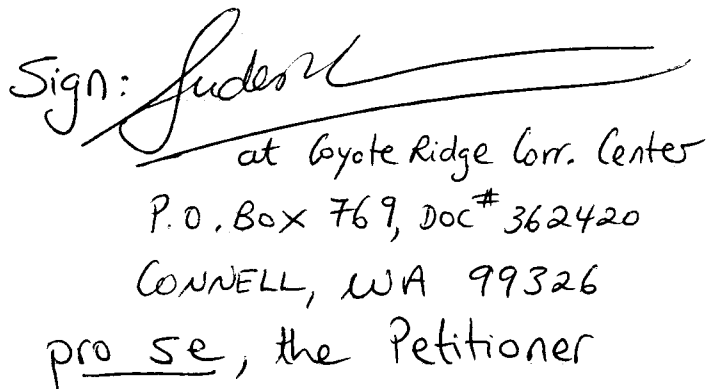 Sign:
at Coyote Ridge Corr. Center
P.O. Box 769, DOC# 362420
CONNELL, WA 99326
pro se, the Petitioner